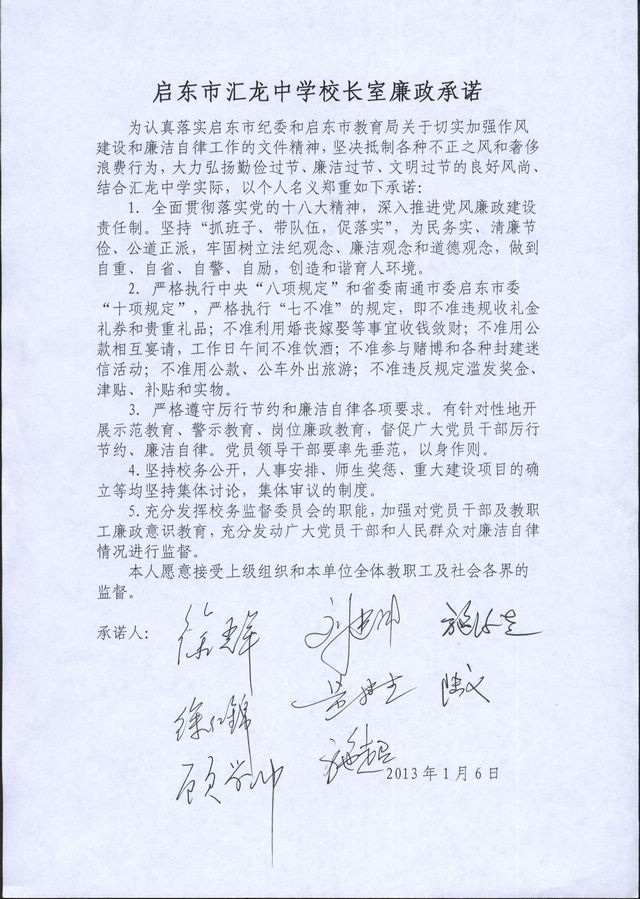 启东市汇龙中学校长室廉政承诺
为认真落实启东市纪委和启东市教育局关于切实加强作风
建设和廉洁自律工作的文件精神，坚决抵制各种不正之风和奢侈
浪费行为，大力弘扬勤俭过节、廉洁过节、文明过节的良好风尚、
结合汇龙中学实际，以个人名义郑重如下承诺：
1. 全面贯彻落实党的十八大精神，深入推进党风廉政建设
责任制。坚持“抓班子、带队伍，促落实”，为民务实、清廉节
俭、公道正派，牢固树立法纪观念、廉洁观念和道德观念，做到
自重、自省、自警、自励，创造和谐育人环境。
2. 严格执行中央“八项规定”和省委南通市委启东市委
“十项规定”，严格执行“七不准”的规定，即不准违规收礼金
礼券和贵重礼品；不准利用婚丧嫁娶等事宜收钱敛财；不准用公
款相互宴请，工作日午间不准饮酒；不准参与赌博和各种封建迷
信活动；不准用公款、公车外出旅游；不准违反规定滥发奖金、
津贴、补贴和实物。
3. 严格遵守厉行节约和廉洁自律各项要求。有针对性地开
展示范教育、警示教育、岗位廉政教育，督促广大党员干部厉行
节约、廉洁自律。党员领导干部要率先垂范，以身作则。
4. 坚持校务公开，人事安排、师生奖惩、重大建设项目的确
立等均坚持集体讨论，集体审议的制度。
5. 充分发挥校务监督委员会的职能，加强对党员干部及教职
工廉政意识教育，充分发动广大党员干部和人民群众对廉洁自律
情况进行监督。
本人愿意接受上级组织和本单位全体教职工及社会各界的
监督。
承诺人：
施超
2013年1月6日